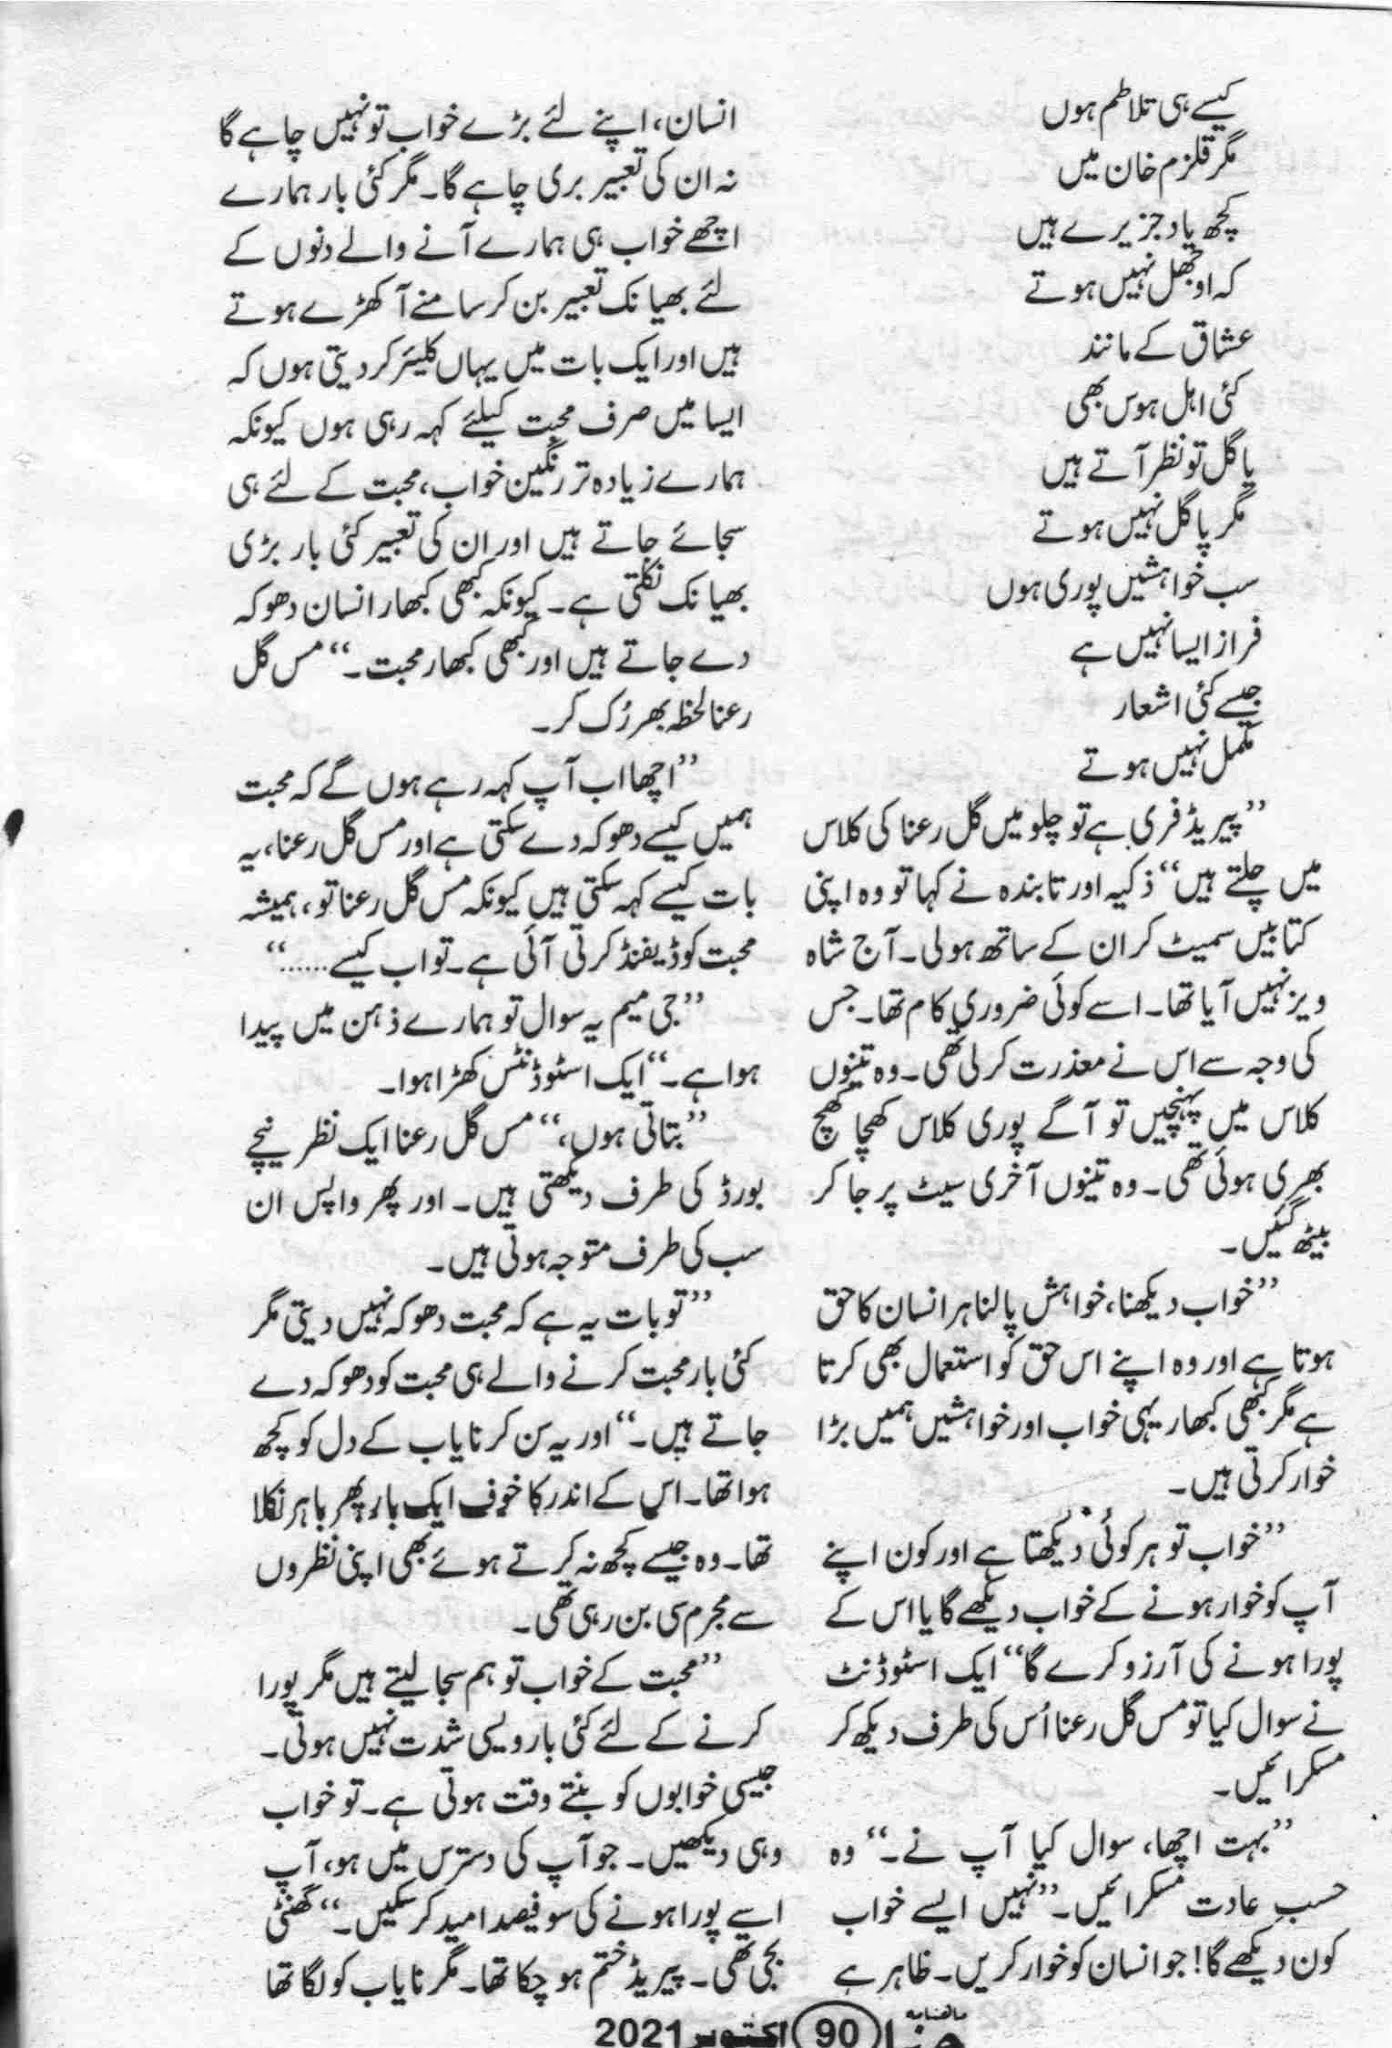 کیسے ہی تلاطم ہوں
مگر قلزم خان میں
کچھ یاد جزیرے ہیں
کہ اوجھل نہیں ہوتے
عشاق کے مانند
کئی اہل ہوس بھی
پاگل تو نظر آتے ہیں
مگر پاگل نہیں ہوتے
سب خواہشیں پوری ہوں
فراز ایسا نہیں ہے
جیسے کئی اشعار
مکمل نہیں ہوتے
’’پیریڈ فری ہے تو چلو میں گل رعنا کی کلاس
میں چلتے ہیں‘‘ ذکیہ اور تابندہ نے کہا تو وہ اپنی
کتابیں سمیٹ کر ان کے ساتھ ہولی۔ آج شاہ
ویز نہیں آیا تھا۔ اسے کوئی ضروری کام تھا۔ جس
کی وجہ سے اس نے معذرت کر لی تھی۔ وہ تینوں
کلاس میں پہنچیں تو آگے پوری کلاس کھچا کھچ
بھری ہوئی تھی۔ وہ تینوں آخری سیٹ پر جا کر
بیٹھ گئیں۔
’’خواب دیکھنا، خواہش پالنا ہر انسان کا حق
ہوتا ہے اور وہ اپنے اس حق کو استعمال بھی کرتا
ہے مگر کبھی کبھار یہی خواب اور خواہشیں ہمیں بڑا
خوار کرتی ہیں۔
’’خواب تو ہر کوئی دیکھتا ہے اور کون اپنے
آپ کو خوار ہونے کے خواب دیکھے گا یا اس کے
پورا ہونے کی آرزو کرے گا‘‘ ایک اسٹوڈنٹ
نے سوال کیا تو مس گل رعنا اُس کی طرف دیکھ کر
مسکرائیں۔
’’بہت اچھا، سوال کیا آپ نے۔‘‘ وہ
حسب عادت مسکرائیں۔ ’’نہیں ایسے خواب
کون دیکھے گا! جو انسان کو خوار کریں۔ ظاہر ہے
انسان، اپنے لئے بڑے خواب تو نہیں چاہے گا
نہ ان کی تعبیر بری چاہے گا۔ مگر کئی بار ہمارے
اچھے خواب ہی ہمارے آنے والے دنوں کے
لئے بھیانک تعبیر بن کر سامنے آ کھڑے ہوتے
ہیں اور ایک بات میں یہاں کلیئر کر دیتی ہوں کہ
ایسا میں صرف محبت کیلئے کہہ رہی ہوں کیونکہ
ہمارے زیادہ تر رنگین خواب، محبت کے لئے ہی
سجائے جاتے ہیں اور ان کی تعبیر کئی بار بڑی
بھیانک نکلتی ہے۔ کیونکہ کبھی کبھار انسان دھوکہ
دے جاتے ہیں اور کبھی کبھار محبت۔‘‘ مس گل
رعنا لحظہ بھر رُک کر۔
’’اچھا اب آپ کہہ رہے ہوں گے کہ محبت
ہمیں کیسے دھوکہ دے سکتی ہے اور مس گل رعنا، یہ
بات کیسے کہہ سکتی ہیں کیونکہ مس گل رعنا تو، ہمیشہ
محبت کو ڈیفنڈ کرتی آئی ہے۔ تو اب کیسے......‘‘
’’جی میم یہ سوال تو ہمارے ذہن میں پیدا
ہوا ہے۔‘‘ ایک اسٹوڈنٹس کھڑا ہوا۔
’’بتاتی ہوں،‘‘ مس گل رعنا ایک نظر نیچے
بورڈ کی طرف دیکھتی ہیں۔ اور پھر واپس ان
سب کی طرف متوجہ ہوتی ہیں۔
’’تو بات یہ ہے کہ محبت دھوکہ نہیں دیتی مگر
کئی بار محبت کرنے والے ہی محبت کو دھوکہ دے
جاتے ہیں۔‘‘ اور یہ سن کر نایاب کے دل کو کچھ
ہوا تھا۔ اس کے اندر کا خوف ایک بار پھر باہر نکلا
تھا۔ وہ جیسے کچھ نہ کرتے ہوئے بھی اپنی نظروں
سے مجرم سی بن رہی تھی۔
’’محبت کے خواب تو ہم سجا لیتے ہیں مگر پورا
کرنے کے لئے کئی بار ویسی شدت نہیں ہوتی۔
جیسی خوابوں کو بنتے وقت ہوتی ہے۔ تو خواب
وہی دیکھیں۔ جو آپ کی دسترس میں ہو، آپ
اسے پورا ہونے کی سو فیصد امید کر سکیں۔‘‘ گھنٹی
بجی تھی۔ پیریڈ ختم ہو چکا تھا۔ مگر نایاب کو لگا تھا
ماہنامہ حنا 90 اکتوبر 2021